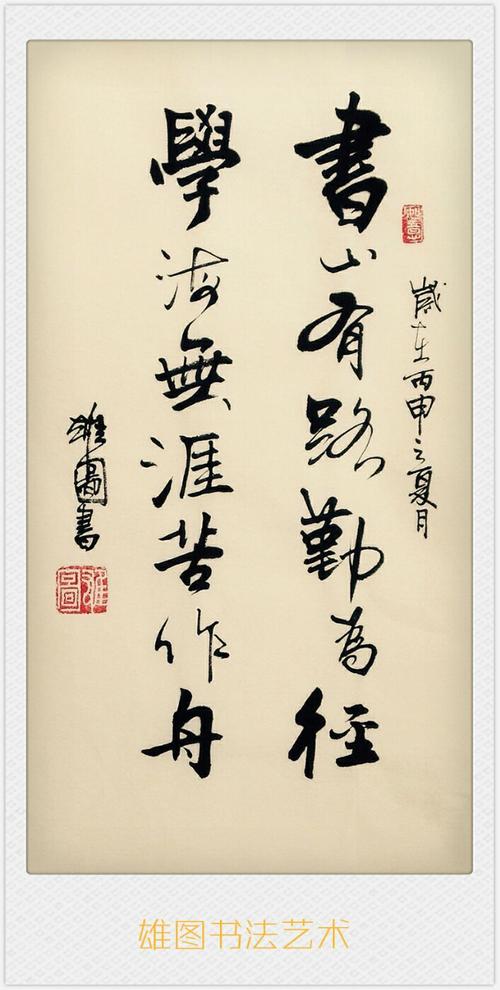 歲在丙申之夏月
書山有路勤為徑
學海無涯苦作舟
雄圖書
雄圖
雄图书法艺术